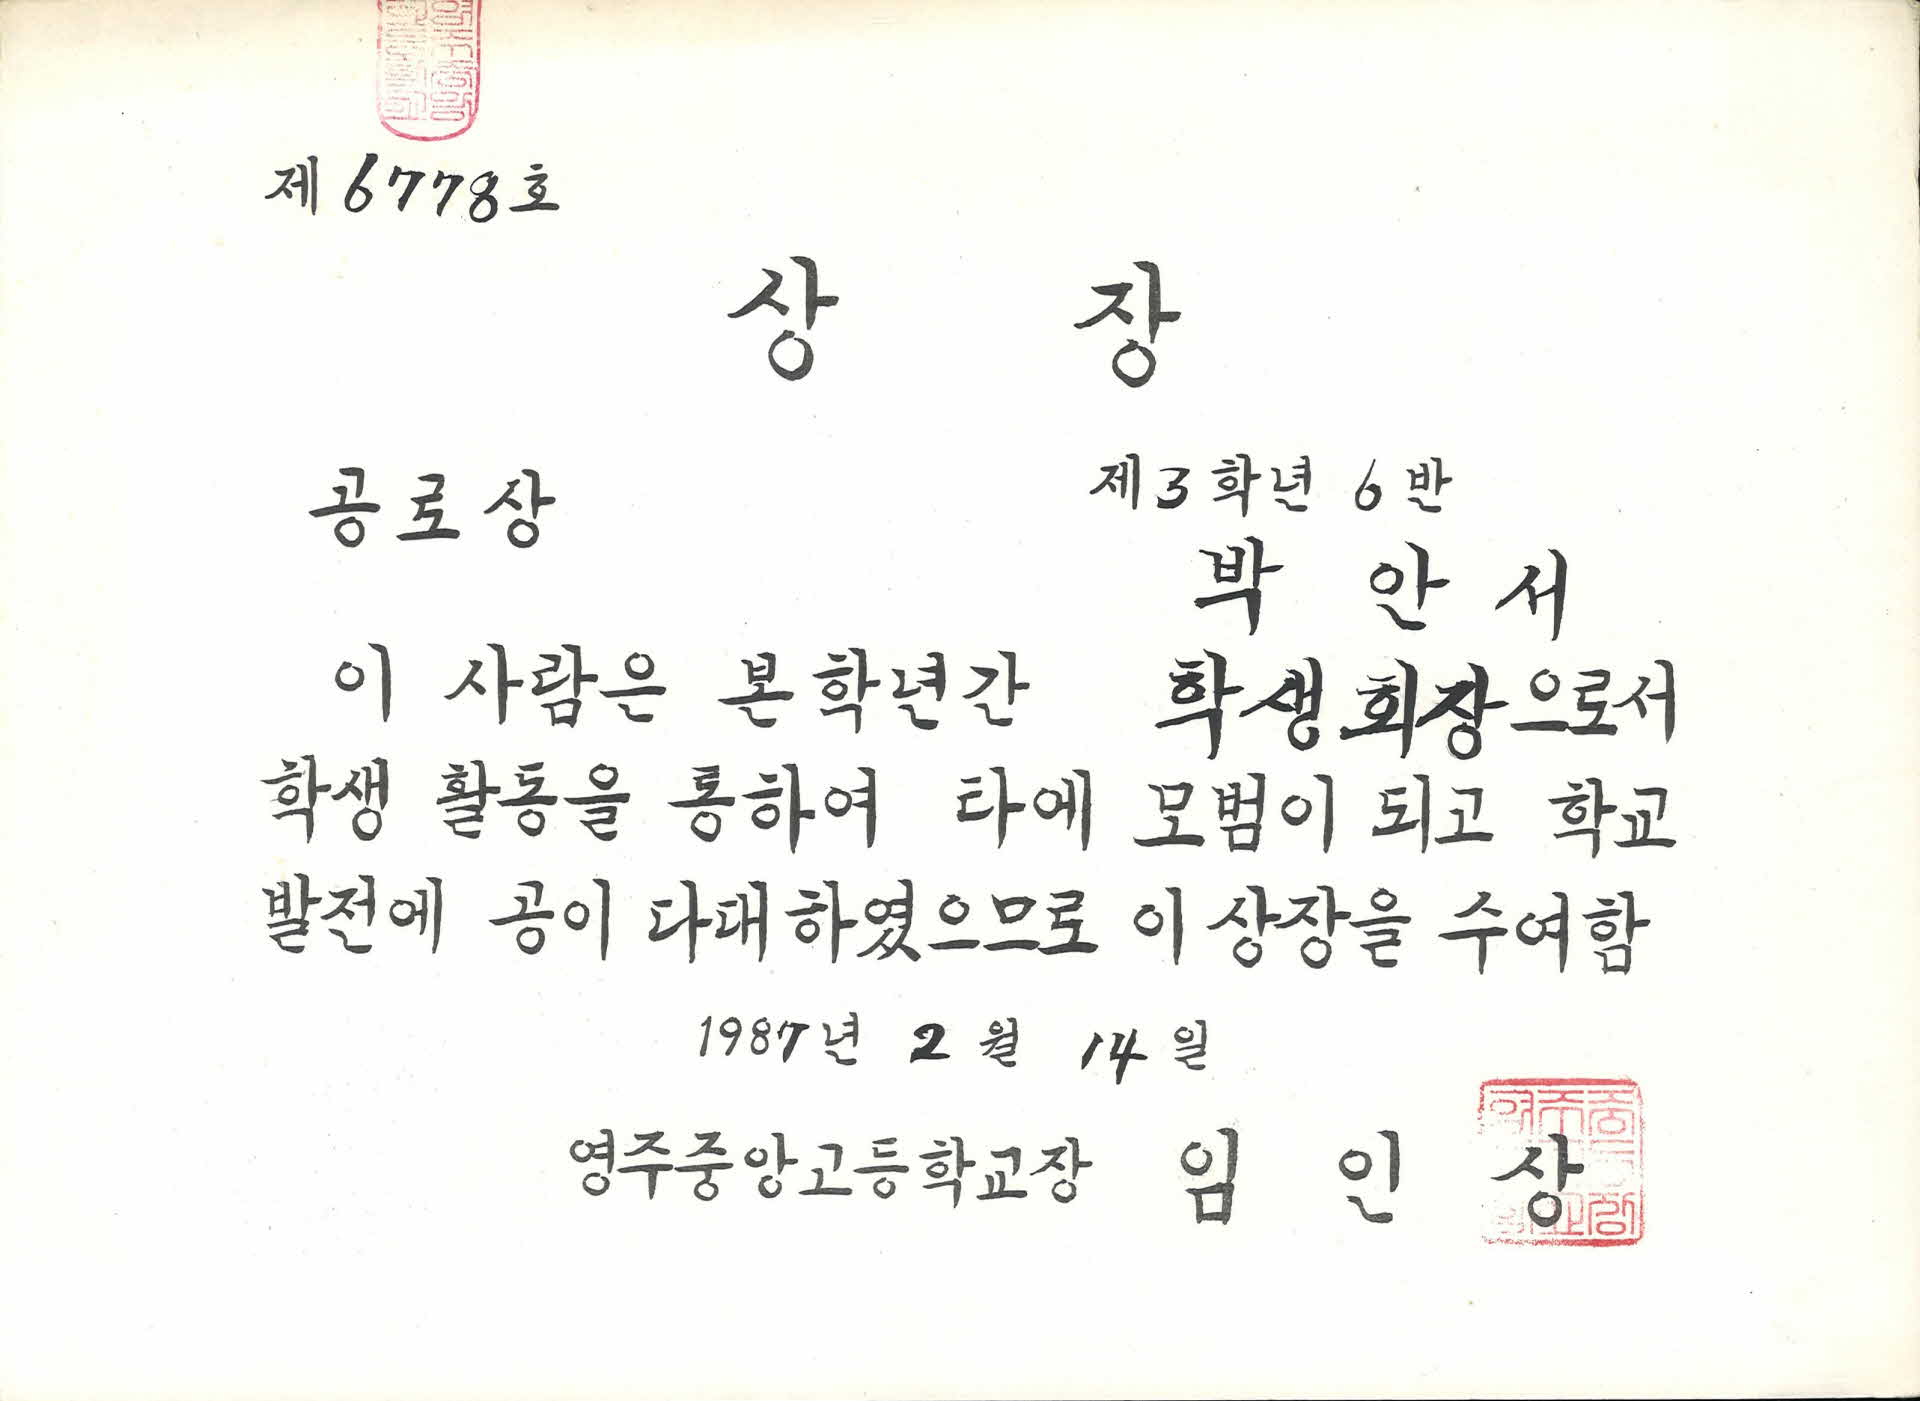 제 6778호
상 장
공로상
제3학년 6반
박 안 서
이 사람은 본학년간 학생회장으로서
학생 활동을 통하여 타에 모범이 되고 학교
발전에 공이 다대하였으므로 이 상장을 수여함
1987년 2월 14일
영주중앙고등학교장 임 인 상